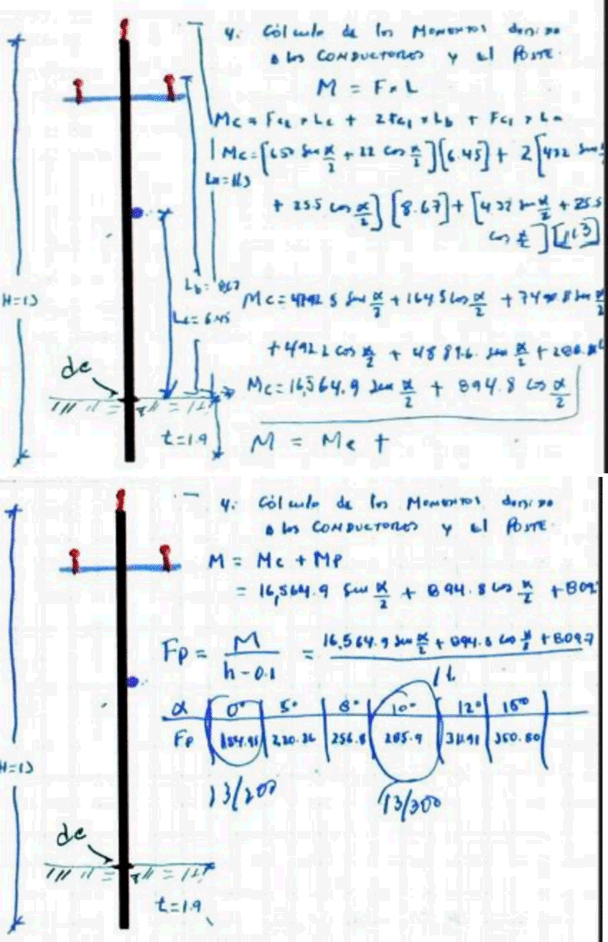 4. Cálculo de los Momentos debido
a los CONDUCTORES y el POSTE.
M = F x L
Mc = Fc2 x Lc + 2Fc1 x Lb + Fc1 x La
Mc = [650 Sen α/2 + 22 Cos α/2][6.45] + 2[432 Sen α/2
La = 11.3
+ 25.5 Cos α/2][8.67] + [432 Sen α/2 + 25.5
Cos α/2][11.3]
H=13
Lb = 8.67
Lc = 6.45
Mc = 4192.5 Sen α/2 + 164.5 Cos α/2 +
+ 442.2 Cos α/2 + 4881.6 Sen α/2 +
Mc = 16,564.9 Sen α/2 + 894.8 Cos α/2
de
t=1.9
M = Mc +
4. Cálculo de los Momentos debido
a los CONDUCTORES y el POSTE.
M = Mc + Mp
= 16,564.9 Sen α/2 + 894.8 Cos α/2 + 809
Fp = M / h - 0.1 = 16,564.9 Sen α/2 + 894.8 Cos α/2 + 809.7 / 11
α 0° 5° 8° 10° 12° 15°
Fp 154.95 220.26 256.8 285.9 311.91 350.80
13/200 13/300
H=13
de
t=1.9